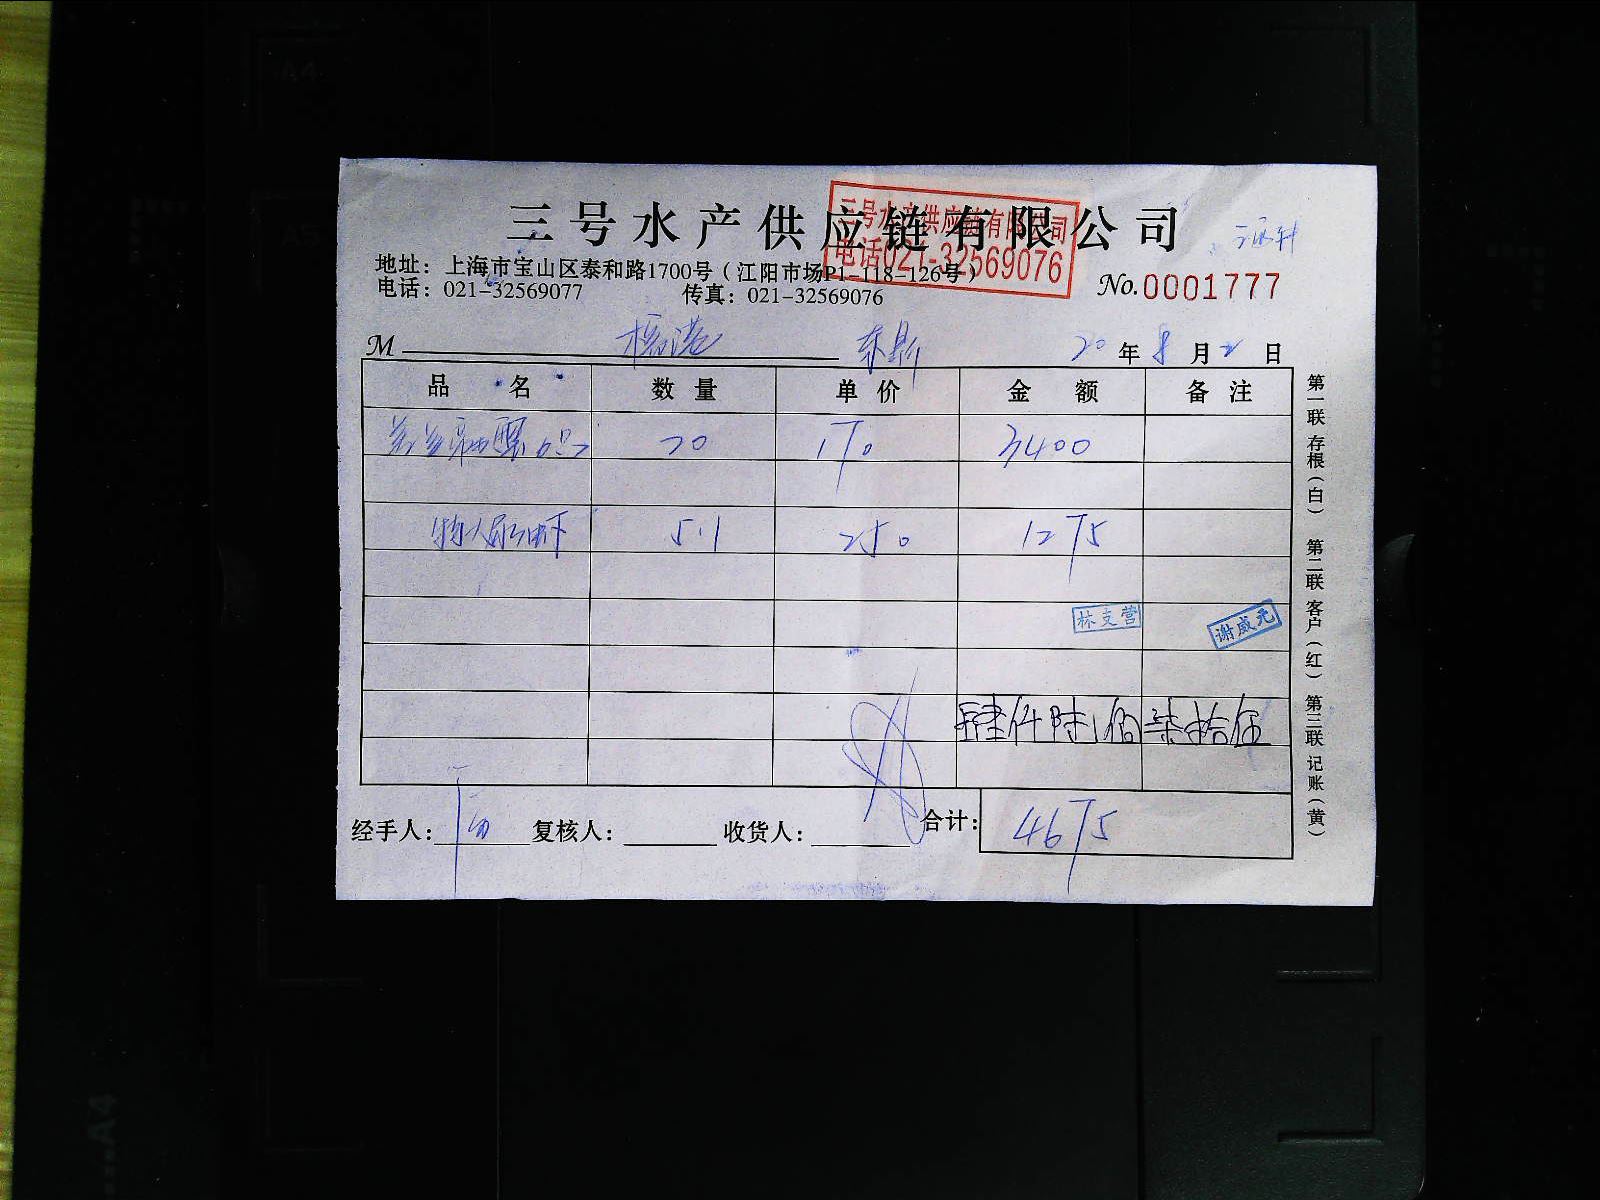 三号水产供应链有限公司
三号水产供应链有限公司
电话021-32569076
地址：上海市宝山区泰和路1700号（江阳市场P1-118-126号）
电话：021-32569077 传真：021-32569076
No.0001777
M 20年8月2日
品名 数量 单价 金额 备注
20 170 3400
5.1 250 1275
林支营 谢威元
肆仟陆佰柒拾伍
经手人： 复核人： 收货人： 合计： 4675
第一联 存根（白） 第二联 客户（红） 第三联 记账（黄）
A4
A5
A4